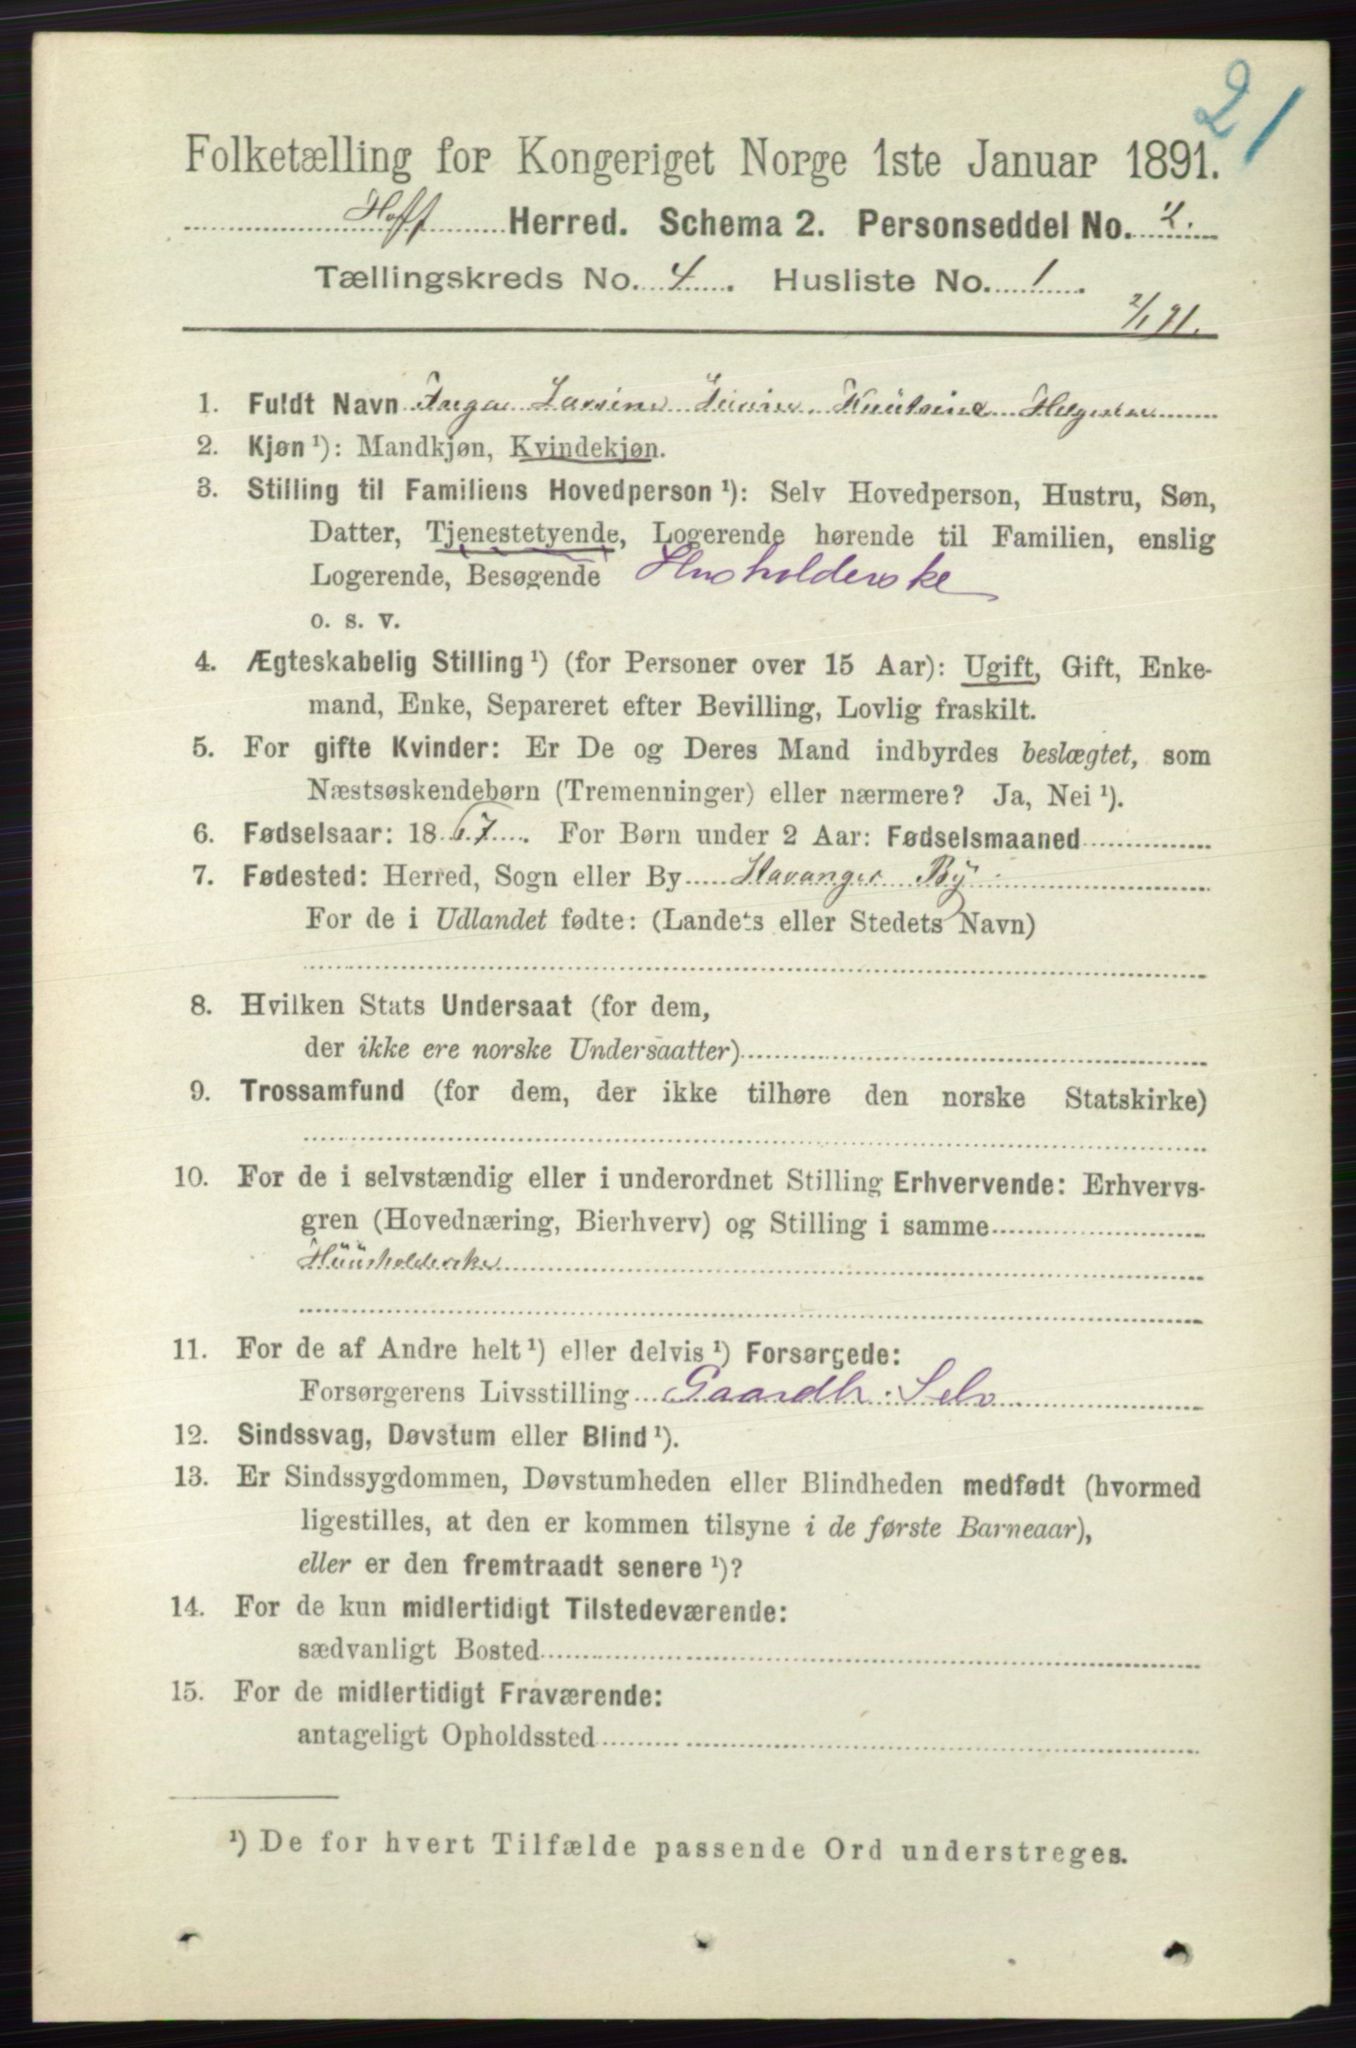 21
Folketælling for Kongeriget Norge 1ste Januar 1891.
Hoff Herred. Schema 2. Personseddel No. 2.
Tællingskreds No. 4. Husliste No. 1.
2/1 91.
1. Fuldt Navn Inga Larsine Knutsine
2. Kjøn ¹): Mandkjøn, Kvindekjøn.
3. Stilling til Familiens Hovedperson ¹): Selv Hovedperson, Hustru, Søn,
Datter, Tjenestetyende, Logerende hørende til Familien, enslig
Logerende, Besøgende Husholderske
o. s. v.
4. Ægteskabelig Stilling ¹) (for Personer over 15 Aar): Ugift, Gift, Enke-
mand, Enke, Separeret efter Bevilling, Lovlig fraskilt.
5. For gifte Kvinder: Er De og Deres Mand indbyrdes beslægtet, som
Næstsøskendebørn (Tremenninger) eller nærmere? Ja, Nei ¹).
6. Fødselsaar: 1867. For Børn under 2 Aar: Fødselsmaaned
7. Fødested: Herred, Sogn eller By Stavanger By
For de i Udlandet fødte: (Landets eller Stedets Navn)
8. Hvilken Stats Undersaat (for dem,
der ikke ere norske Undersaatter)
9. Trossamfund (for dem, der ikke tilhøre den norske Statskirke)
10. For de i selvstændig eller i underordnet Stilling Erhvervende: Erhvervs-
gren (Hovednæring, Bierhverv) og Stilling i samme
Huusholderske
11. For de af Andre helt ¹) eller delvis ¹) Forsørgede:
Forsørgerens Livsstilling Gaardbr. Selv
12. Sindssvag, Døvstum eller Blind ¹).
13. Er Sindssygdommen, Døvstumheden eller Blindheden medfødt (hvormed
ligestilles, at den er kommen tilsyne i de første Barneaar),
eller er den fremtraadt senere ¹)?
14. For de kun midlertidigt Tilstedeværende:
sædvanligt Bosted
15. For de midlertidigt Fraværende:
antageligt Opholdssted
¹) De for hvert Tilfælde passende Ord understreges.